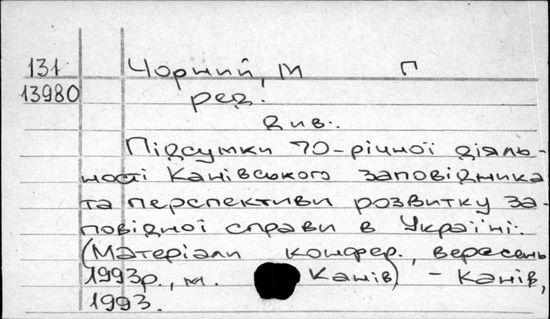 131 Чорний, М Г
13980 ред.
див.:
Підсумки 70-річної діяль-
ності Канівського заповідника
та перспективи розвитку за-
повідної справи в Україні:
(Матеріали конфер., вересень
1993р., м. Канів) - Канів,
1993.